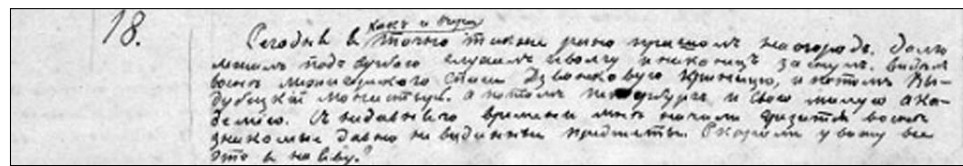 18.
какъ и вчера
Сегодня я точно также рано пришолъ на огородъ. долго
лежалъ подъ вербою слушалъ иволгу и наконецъ заснулъ. виделъ
восне межигорского Спаса Дзвонковую криницю, и потомъ Вы-
дубецкій монастырь. а потомъ петербургъ и свою милую ака-
демію. С недавнего времени мнѣ начали грезится восне
знакомые давно невиденныи предметы. Скороли увижу все
это я наяву?